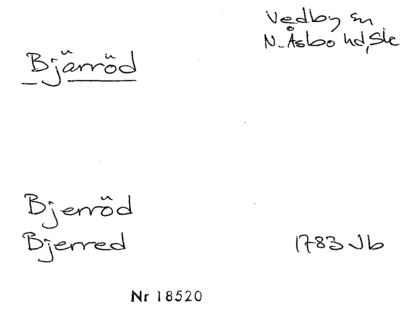 Vedby sn
N. Åsbo hd, Sk
Bjärröd
Bjerröd
Bjerred 1783 Jb
Nr 18520